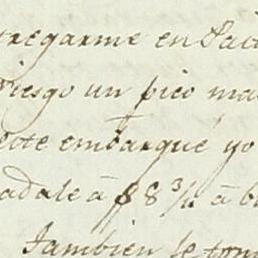 tregarme en
riesgo un pico ma
este embarqué yo
adale â $ 8 3/4 â b
Tambien se tom